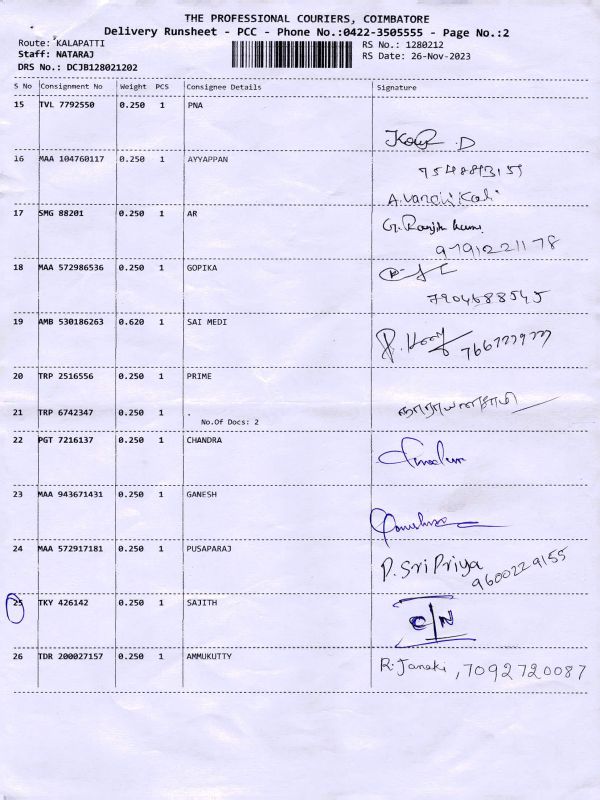 THE PROFESSIONAL COURIERS, COIMBATORE
Delivery Runsheet - PCC - Phone No.:0422-3505555 - Page No.:2
Route: KALAPATTI
RS No.: 1280212
Staff: NATARAJ
RS Date: 26-Nov-2023
DRS No.: DCJB128021202
S No Consignment No Weight PCS Consignee Details Signature
15 TVL 7792550 0.250 1 PNA
D
16 MAA 104760117 0.250 1 AYYAPPAN
A.
17 SMG 88201 0.250 1 AR
G. Ranjith
9791221178
18 MAA 572986536 0.250 1 GOPIKA
7904688545
19 AMB 530186263 0.620 1 SAI MEDI
20 TRP 2516556 0.250 1 PRIME
21 TRP 6742347 0.250 1 .
நாராயணசாமி
No.Of Docs: 2
22 PGT 7216137 0.250 1 CHANDRA
23 MAA 943671431 0.250 1 GANESH
24 MAA 572917181 0.250 1 PUSAPARAJ
P. Sri Priya
9600229155
25 TKY 426142 0.250 1 SAJITH
C/N
26 TDR 200027157 0.250 1 AMMUKUTTY
R. Janaki, 7092720087